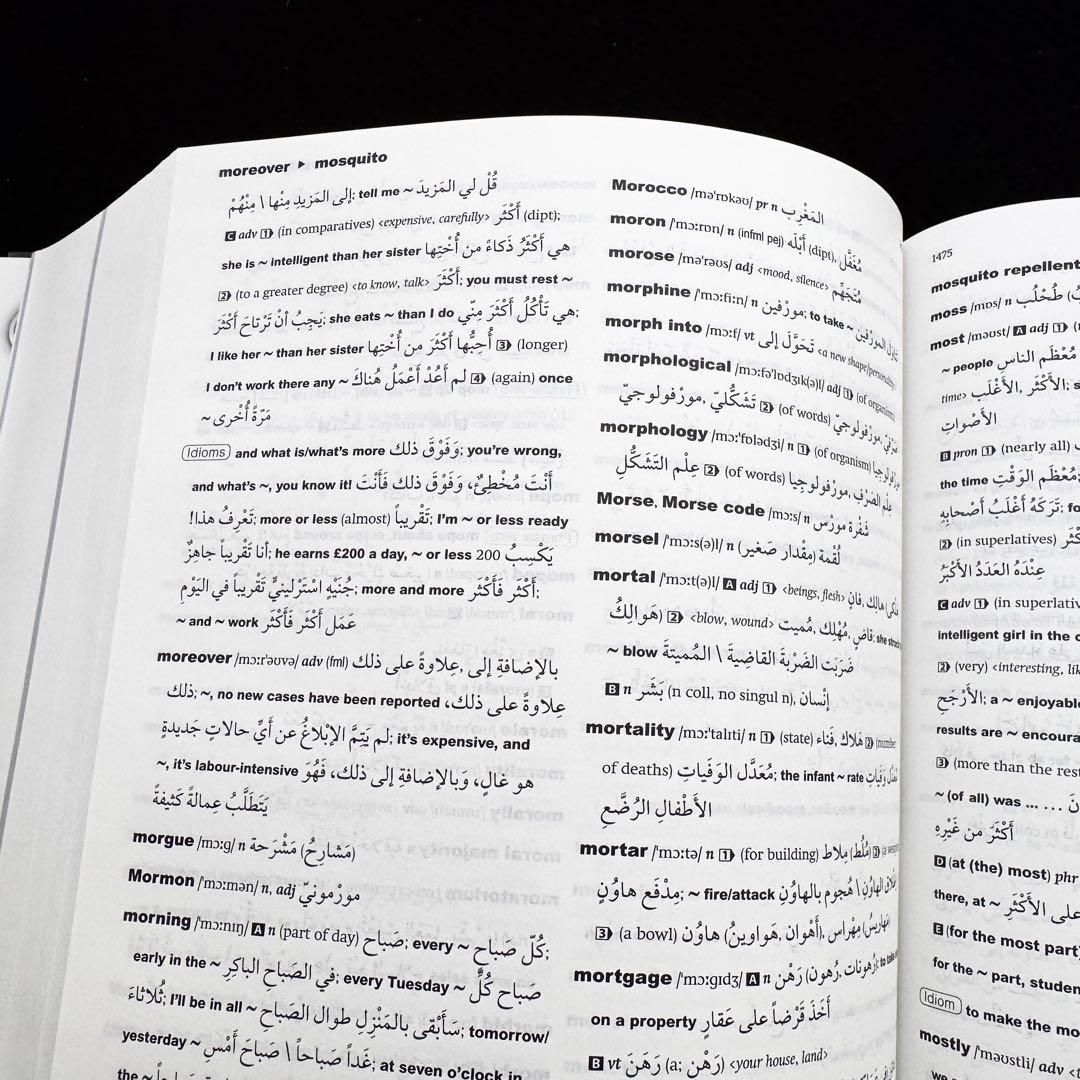 moreover ▸ mosquito
إلى المَزيدِ مِنْها \ مِنْهُمْ; tell me ~ قُلْ لي المَزيدَ
C adv 1 (in comparatives) <expensive, carefully> أَكْثَرَ (dipt);
she is ~ intelligent than her sister هي أَكْثَرُ ذَكاءً من أُخْتِها
2 (to a greater degree) <to know, talk> أَكْثَرَ; you must rest ~
يَجِبُ أنْ تَرْتاحَ أَكْثَرَ; she eats ~ than I do هي تَأْكُلُ أَكْثَرَ مِنّي;
I like her ~ than her sister أُحِبُّها أَكْثَرَ من أُخْتِها 3 (longer)
I don't work there any ~ لم أَعُدْ أَعْمَلُ هُناكَ 4 (again) once
~ مَرّةً أُخْرى
Idioms and what is/what's more وَفَوْقَ ذلك; you're wrong,
and what's ~, you know it! أَنْتَ مُخْطِئٌ، وَفَوْقَ ذلك فَأَنْتَ
تَعْرِفُ هذا!; more or less (almost) تَقْريباً; I'm ~ or less ready
أنا تَقْريباً جاهِزٌ; he earns £200 a day, ~ or less يَكْسِبُ 200
جُنَيْهٍ اسْتَرْلينيٍّ تَقْريباً في اليَوْمِ; more and more أَكْثَرَ فَأَكْثَرَ;
~ and ~ work عَمَل أَكْثَر فَأَكْثَر
moreover /mɔːrˈəʊvə/ adv (fml) بالإضافةِ إلى, عِلاوةً على ذلك
ذلك; ~, no new cases have been reported عِلاوةً على ذلك،
لم يَتِمَّ الإبْلاغُ عن أَيِّ حالاتٍ جَديدةٍ; it's expensive, and
~, it's labour-intensive هو غالٍ، وَبالإضافةِ إلى ذلك، فَهُوَ
يَتَطَلَّبُ عِمالةً كَثيفةً
morgue /mɔːg/ n مَشْرَحة (مَشارِحُ)
Mormon /ˈmɔːmən/ n, adj مورْمونيّ
morning /ˈmɔːnɪŋ/ A n (part of day) صَباح; every ~ كُلَّ صَباحٍ;
early in the ~ في الصَباحِ الباكِرِ; every Tuesday ~ صَباحَ كُلِّ
ثُلاثاءَ; I'll be in all ~ سَأَبْقى بالمَنْزِلِ طوال الصَباحِ; tomorrow/
yesterday ~ غَداً صَباحاً \ صَباحَ أَمْسِ; at seven o'clock in
the ~
Morocco /məˈrɒkəʊ/ pr n المَغْرِب
moron /ˈmɔːrɒn/ n (infml pej) أَبْلَه (dipt), مُغَفَّل
morose /məˈrəʊs/ adj <mood, silence> مُتَجَهِّم
morphine /ˈmɔːfiːn/ n مورْفين; to take ~
morph into /mɔːf/ vt تَحَوَّلَ إلى <a new shape/personality>
morphological /mɔːfəˈlɒdʒɪk(ə)l/ adj 1 (of organism)
تَشَكُّليّ, مورْفولوجيّ 2 (of words) مورْفولوجيّ
morphology /mɔːˈfɒlədʒi/ n 1 (of organism)
عِلْم التَشَكُّلِ 2 (of words) عِلْم الصَرْفِ, مورْفولوجيا
Morse, Morse code /mɔːs/ n شَفْرة مورْس
morsel /ˈmɔːs(ə)l/ n لُقْمة (مِقْدار صَغير)
mortal /ˈmɔːt(ə)l/ A adj 1 <beings, flesh> فانٍ, هالِك
(هَوالِكُ) 2 <blow, wound> قاضٍ, مُهْلِك, مُميت;
~ blow ضَرَبَت الضَرْبةَ القاضِيةَ \ المُميتةَ
B n بَشَر (n coll, no singul n), إنْسان
mortality /mɔːˈtalɪti/ n 1 (state) هَلاك, فَناء 2 (number
of deaths) مُعَدَّل الوَفَياتِ; the infant ~ rate مُعَدَّل وَفَياتِ
الأَطْفالِ الرُضَّعِ
mortar /ˈmɔːtə/ n 1 (for building) مِلاط (مُلُط) 2
مِدْفَع هاوُن; ~ fire/attack هُجوم بالهاوُنِ
3 (a bowl) هاوُن (أَهْوان, هَواوينُ), مِهْراس
mortgage /ˈmɔːgɪdʒ/ A n رَهْن (رُهون, رُهونات);
on a property أَخَذَ قَرْضاً على عَقارٍ
B vt رَهَنَ (a; رَهْن) <your house, land>
1475
mosquito repellent
moss /mɒs/ n طُحْلُب
most /məʊst/ A adj 1
~ people مُعْظَم الناسِ
time> الأَكْثَر, الأَغْلَب
الأَصْواتِ
B pron 1 (nearly all)
the time مُعْظَمَ الوَقْتِ;
تَرَكَهُ أَغْلَبُ أَصْحابِهِ
2 (in superlatives)
عِنْدَهُ العَدَدُ الأَكْبَرُ
C adv 1 (in superlativ
intelligent girl in the c
2 (very) <interesting, lik
الأَرْجَحِ; a ~ enjoyable
results are ~ encoura
3 (more than the rest
~ (of all) was ... ...
أَكْثَرَ من غَيْرِهِ
D (at (the) most) phr
there, at ~ على الأَكْثَرِ
E (for the most part)
for the ~ part, student
Idiom to make the mo
mostly /ˈməʊstli/ adv